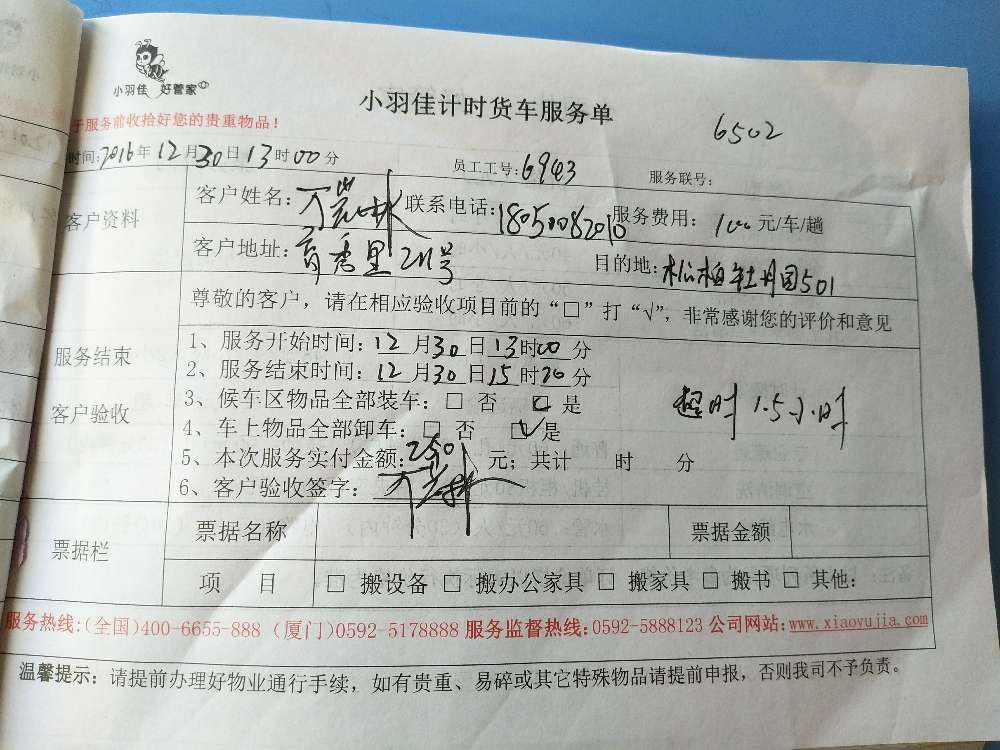 小羽佳 好管家
小羽佳计时货车服务单
6502
于服务前收拾好您的贵重物品！
时间：2016年12月30日13时00分 员工工号：6943 服务联号：
客户资料
客户姓名： 联系电话：18050082010 服务费用：100元/车/趟
客户地址：育秀里211号 目的地：松柏牡丹园501
尊敬的客户，请在相应验收项目前的“□”打“√”，非常感谢您的评价和意见
服务结束
客户验收
1、服务开始时间：12月30日13时00分
2、服务结束时间：12月30日15时30分
3、候车区物品全部装车：□ 否 □ 是
4、车上物品全部卸车：□ 否 □ 是
超时1.5小时
5、本次服务实付金额：250元；共计 时 分
6、客户验收签字：
票据栏
票据名称 票据金额
项 目 □ 搬设备 □ 搬办公家具 □ 搬家具 □ 搬书 □ 其他：
服务热线：(全国)400-6655-888 (厦门)0592-5178888 服务监督热线：0592-5888123 公司网站：www.xiaoyujia.com
温馨提示：请提前办理好物业通行手续，如有贵重、易碎或其它特殊物品请提前申报，否则我司不予负责。